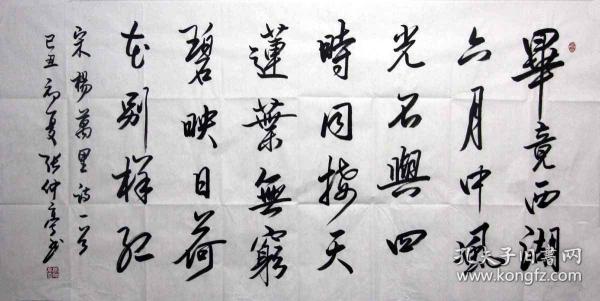 畢竟西湖
六月中風
光不與四
時同接天
蓮葉無窮
碧映日荷
花別樣紅
宋楊萬里詩一首
己丑初夏張仲亭書
孔夫子旧书网
www.kongfz.com